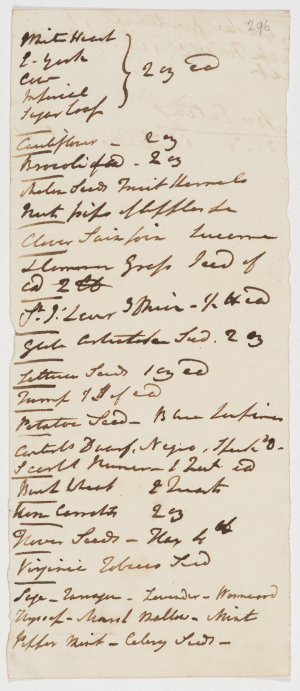 296
White Heart
E. York
Cow
Imperial
Sugar Loaf
2 oz ea
Cauliflower - 2 oz
Brocoli of ea - 2 oz
Melon Seeds Fruit Kernels
Nuts pips of Apples &c
Clover Sain foin Lucerne
Grass Seed of
ea 2 lb
Globe Artichoke Seed. 2 oz
Lettuce Seeds 1 oz ea
Turnip of ea
Potatoe Seed -
Dwarf, Negro,
Scarlet Runner - 1 Qut. ea
Buck Wheat 2 Quarts
Carrotts 2 oz
Flower Seeds - Flax 4 lb
Virginia Tobacco Seed
Sage - Tansey - Lavender - Wormwood
Hyssop - Marsh Mallow - Mint
Pepper Mint - Celery Seeds -